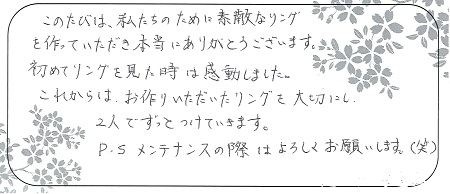 このたびは、私たちのために素敵なリング
を作っていただき本当にありがとうございます。
初めてリングを見た時は感動しました。
これからは、お作りいただいたリングを大切にし、
2人でずっとつけていきます。
P.S メンテナンスの際はよろしくお願いします。(笑)